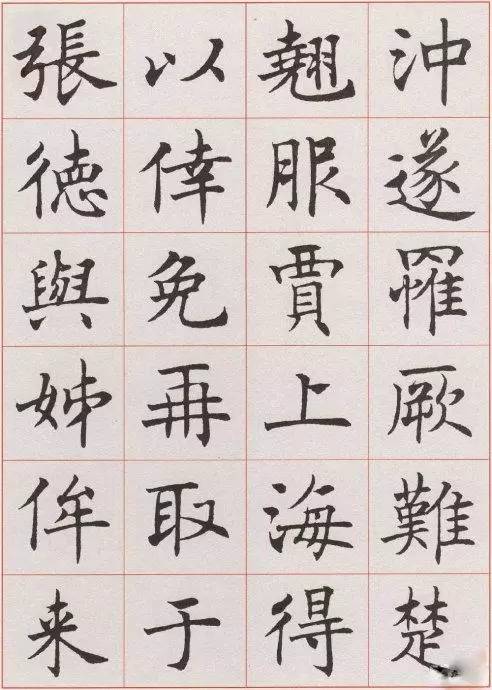 沖遂罹厥難楚
翹服賈上海得
以倖免再取于
張徳與姊侔来